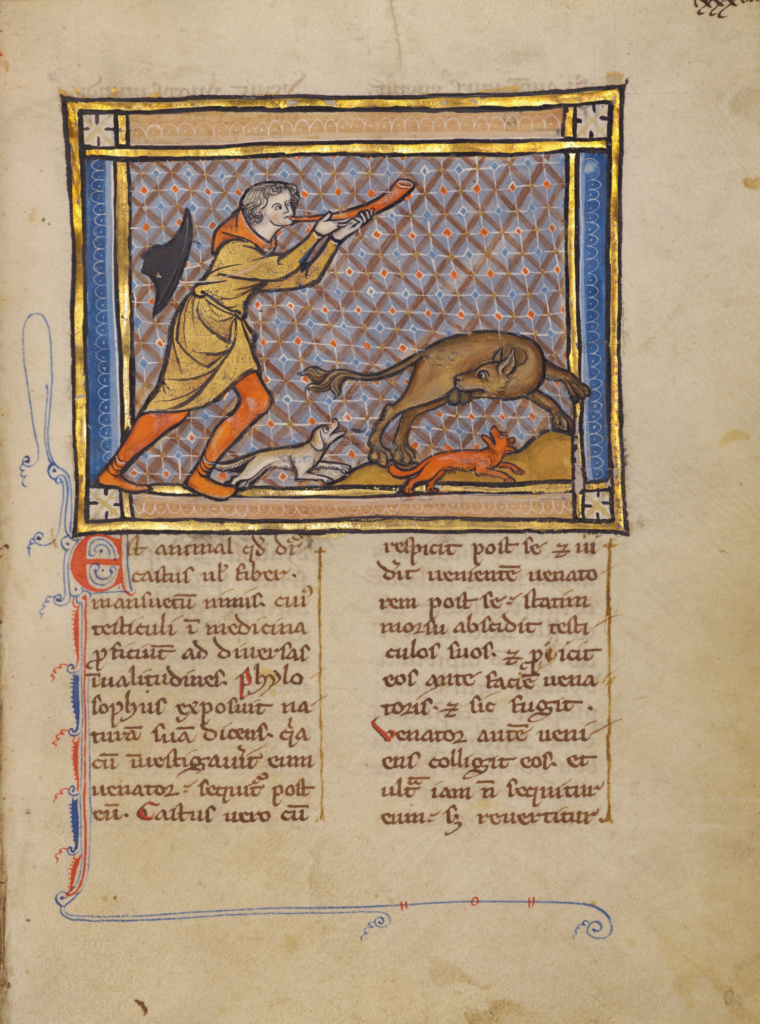 Est animal qđ dr̄
castus ul' fiber.
mansuetū nimis. cui'
testiculi ī medicina
ꝓficiūt ad diuersas
īualitudines. phylo
sophus exposuit na
turā suā dicens. qꝛa
cū īuestigauit eum
uenator: sequit᷑ post
eū. Castus uero cū
respicit post se ⁊ ui
dit uenientē uenato
rem post se: statim
morsu abscidit testi
culos suos. ⁊ ꝓicit
eos ante faciē uena
toris. ⁊ sic fugit.
Venator autē ueni
ens colligit eos. et
ultᵃ iam ñ sequitur
eum: sꝫ reuertitur.